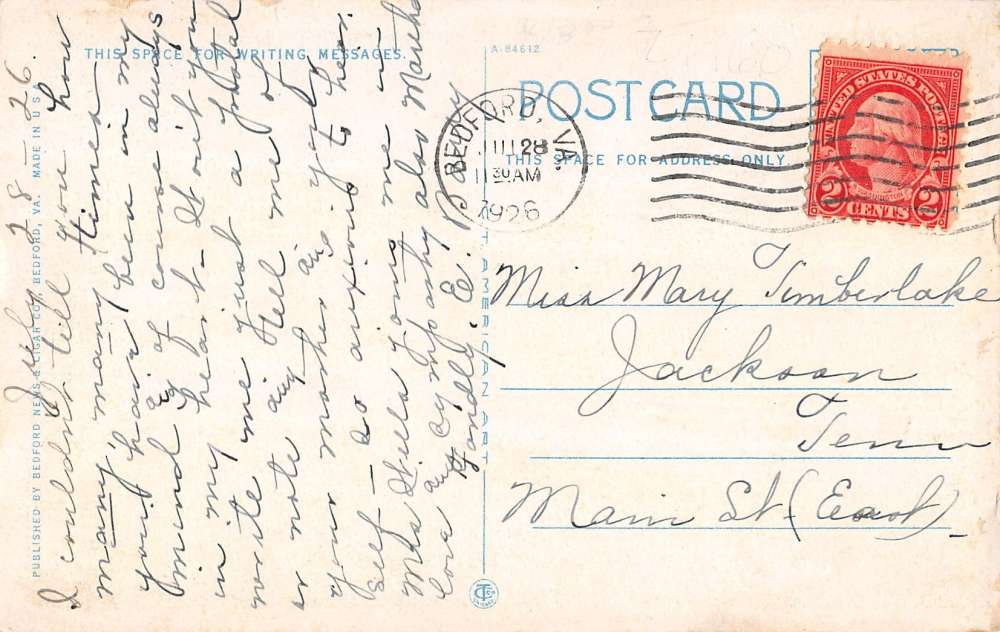 THIS SPACE FOR WRITING MESSAGES.
A-84612
POSTCARD
THIS SPACE FOR ADDRESS ONLY.
BEDFORD, VA.
JUL 28
11 30 AM
1926
UNITED STATES POSTAGE
2 CENTS 2
Miss Mary Timberlake
Jackson
Tenn
Main St. (East)
PUBLISHED BY BEDFORD NEWS & CIGAR CO., BEDFORD, VA. MADE IN U.S.A.
July 28 — 26.
I couldn't tell you how
many, many times
you have been in my
mind and of course always
in my heart — Won't you
write me just a postal
or note and tell me of
your mother and your
self — so anxious to hear.
Mrs Wells joins me in
love and sympathy also Martha
Yandly E.
C.T. AMERICAN ART
CT CHICAGO